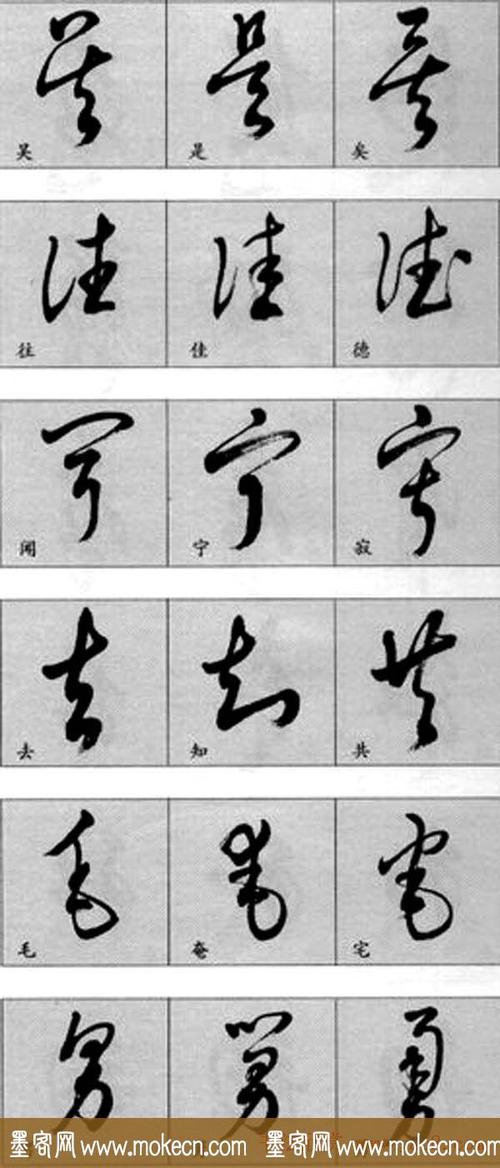 吴 是 矣
往 佳 德
闻 宁 寂
去 知 共
毛 奄 宅
墨客网 www.mokecn.com 墨客网 www.mokecn.com